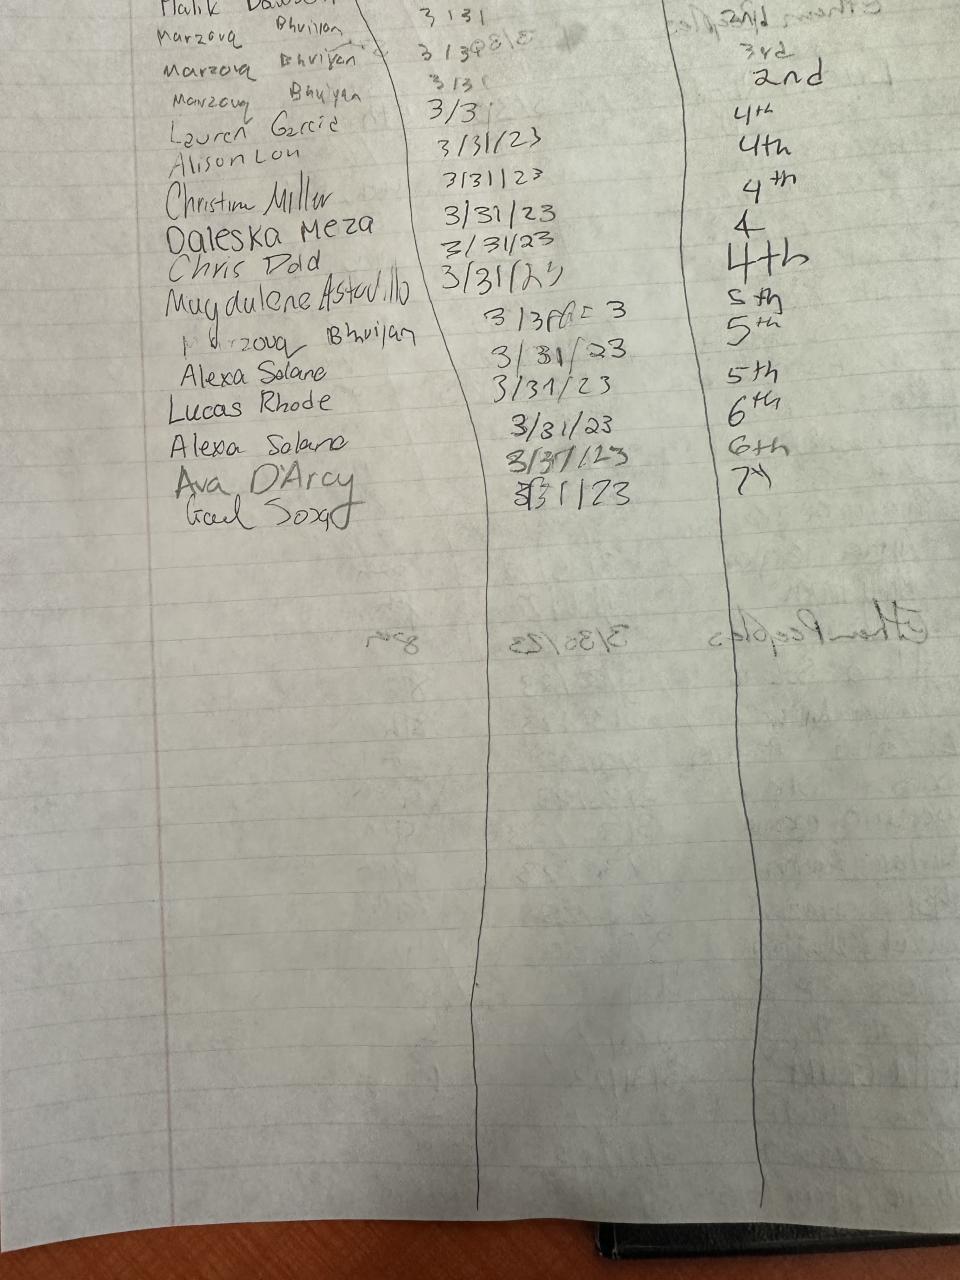 Malik
Marzouq Bhuiyan 3 131 2nd
Marzouq Bhuiyan 3 13 3rd
Marzouq Bhuiyan 313 2nd
Lauren Garcia 3/3 4th
Alison Lou 3/31/23 4th
Christina Miller 3/31/23 4th
Daleska Meza 3/31/23 4
Chris Dold 3/31/23 4th
Magdalene 3/31/23 5th
Marzouq Bhuiyan 5th
Alexa Solano 3/31/23 5th
Lucas Rhode 3/31/23 6th
Alexa Solano 3/31/23 6th
Ava D'Arcy 3/31/23
Gael 3/31/23
Ethan Peeples 3/30/23 8th